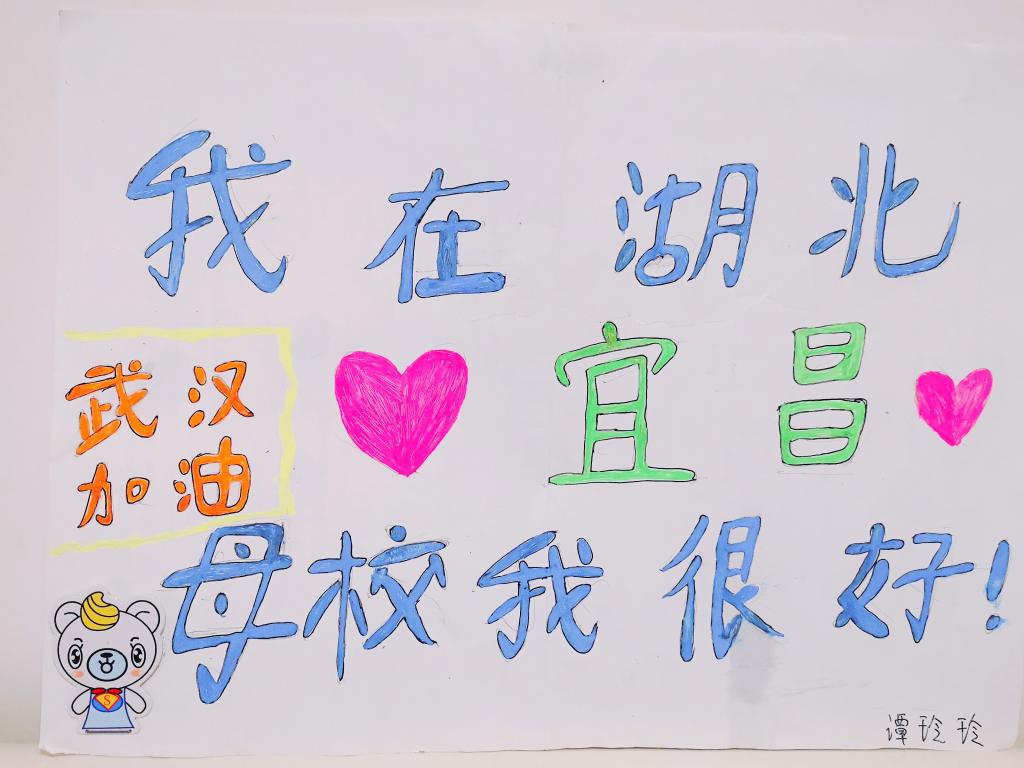 我在湖北
武汉
加油
宜昌
母校我很好!
S
谭玲玲